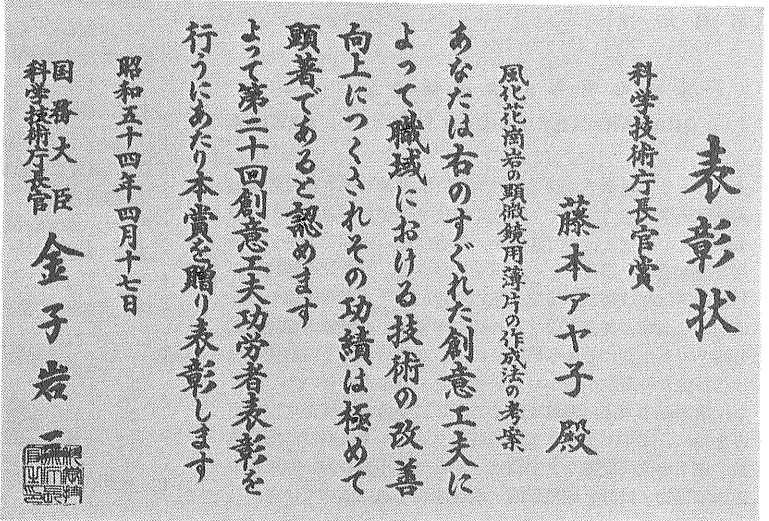 表彰状
科学技術庁長官賞
藤本アヤ子殿
風化花崗岩の顕微鏡用薄片の作成法の考案
あなたは右のすぐれた創意工夫に
よって職域における技術の改善
向上につくされその功績は極めて
顕著であると認めます
よって第二十回創意工夫功労者表彰を
行うにあたり本賞を贈り表彰します
昭和五十四年四月十七日
国務大臣
科学技術庁長官
金子岩三